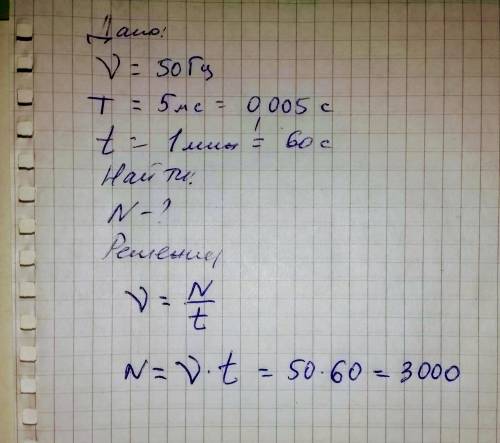 Дано:
ν = 50 Гц
T = 5 мс = 0,005 с
t = 1 мин = 60 с
Найти:
N - ?
Решение
ν = N/t
N = ν · t = 50 · 60 = 3000